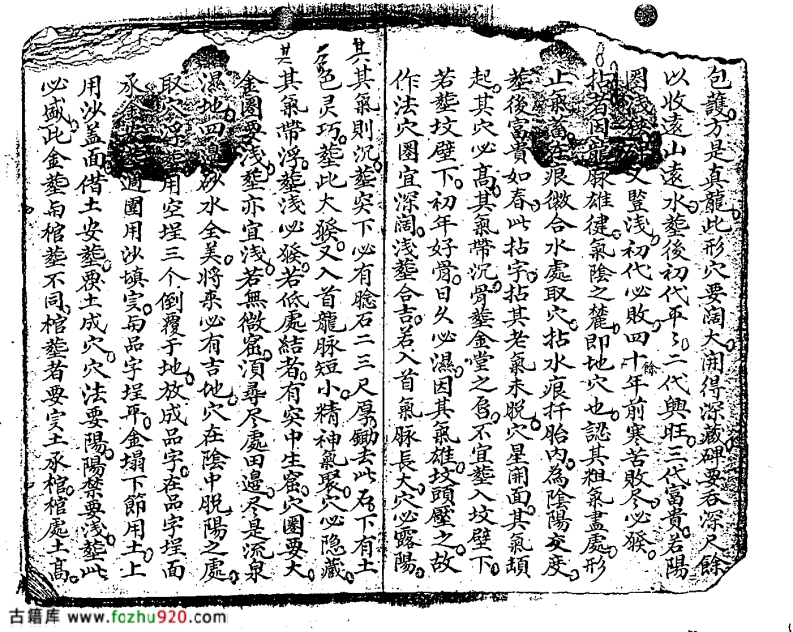 包護方是真龍此形穴要濶大開得深藏碑要吞深尺餘
以收遠山遠水葬後初代平々二代興旺三代富貴若陽
圈浅 又豎浅初代必敗四十餘年前寒苦敗尽必發
拈者因龍脉雄徤氣陰之麓即地穴也認其粗氣盡處形
止氣 痕微合水處取穴拈水痕扦胎内為陰陽交度
葬後富貴如春此拈字拈其老氣未脱穴星開面其氣頑
起其穴必高其氣帶沉骨葬金堂之启不宜葬入坟壁下
若葬坟壁下初年好骨日久必濕因其氣雄坟頭壓之故
作法穴圈宜深濶浅葬合吉若入首氣脉長大穴必露陽
其其氣則沉葬突下必有脸石二三尺厚鋤去此石下有土
色灵巧葬此大發又入首龍脉短小精神氣聚穴必隐藏
其其氣帶浮葬浅必發若低處結者有突中生窩穴圈要大
金圈要浅葬亦宜浅若無微窩湏尋尽處田邉尽是流泉
濕地四邉砂水全美将來必有吉地穴在陰中脱陽之處
取穴浮葬用空埕三个倒覆于地放成品字在品字埕面
承金 過圍用沙填实与品字埕平金塌下節用土上
用沙盖面借土安葬要土成穴穴法要陽陽禁要浅葬此
必盛此金葬与棺葬不同棺葬者要实土承棺棺處土高
古籍库 www.fozhu920.com